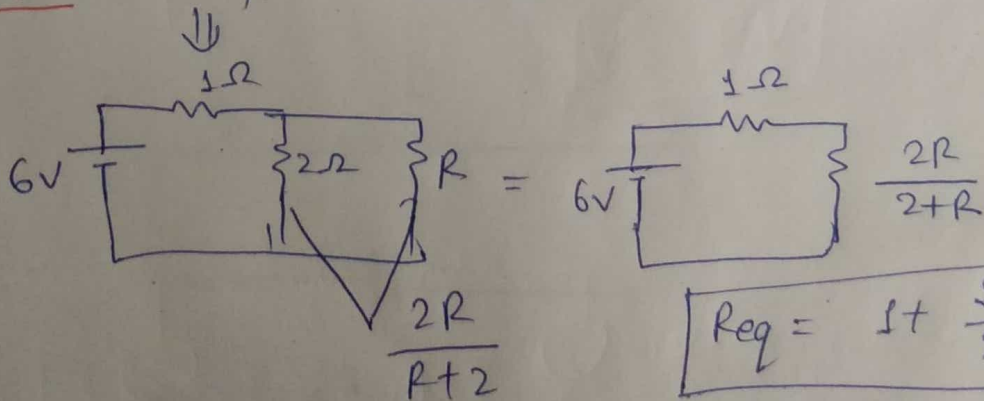 ⇓
1Ω
6v
2Ω
R
=
2R
R+2
1Ω
6v
2R
2+R
Req = 1+